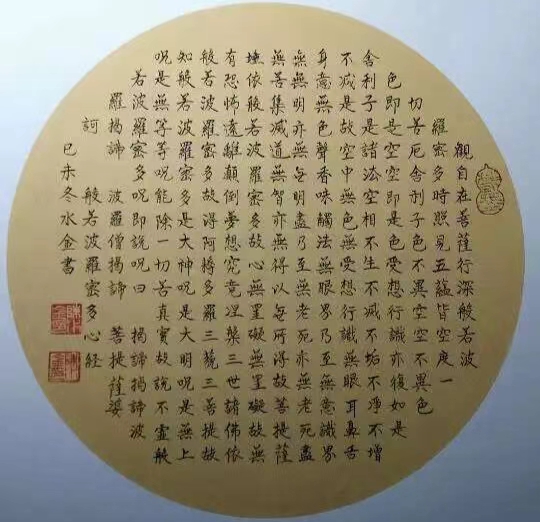 觀自在菩薩行深般若波
羅蜜多時照見五蘊皆空度一
切苦厄舍利子色不異空空不異色
色即是空空即是色受想行識亦復如是
舍利子是諸法空相不生不滅不垢不淨不增
不減是故空中無色無受想行識無眼耳鼻舌
身意無色聲香味觸法無眼界乃至無意識界
無無明亦無無明盡乃至無老死亦無老死盡
無苦集滅道無智亦無得以無所得故菩提薩
埵依般若波羅蜜多故心無罣礙無罣礙故無
有恐怖遠離顛倒夢想究竟涅槃三世諸佛依
般若波羅蜜多故得阿耨多羅三藐三菩提故
知般若波羅蜜多是大神呪是大明呪是無上
呪是無等等呪能除一切苦真實故說不虛般
若波羅蜜多呪即說呪曰 揭諦揭諦波
羅揭諦 波羅僧揭諦 菩提薩婆
訶 般若波羅蜜多心経
己未冬水金書